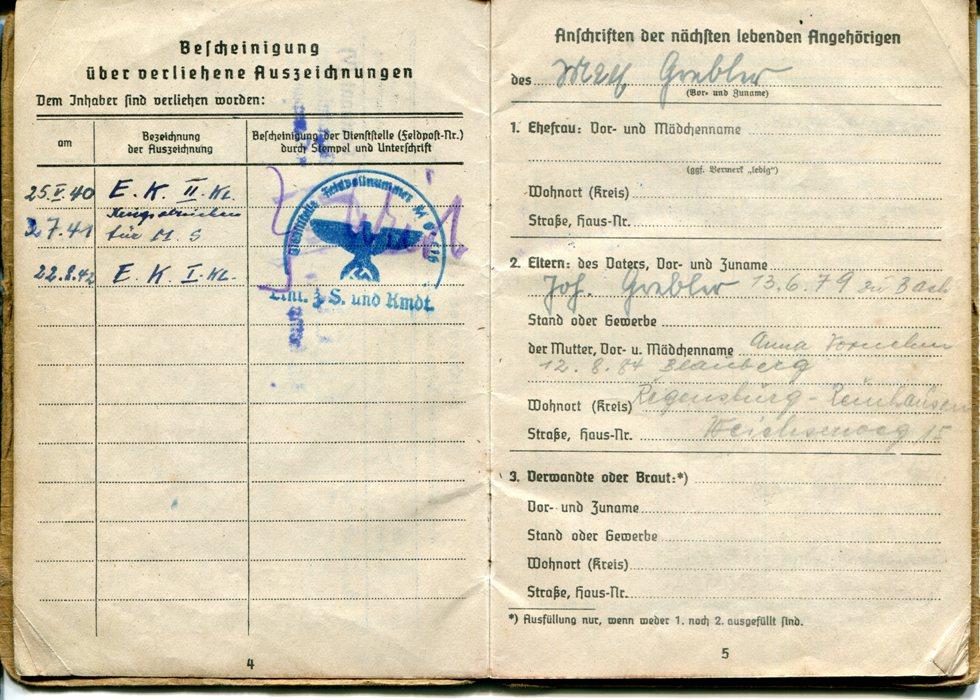 Bescheinigung
über verliehene Auszeichnungen
Dem Inhaber sind verliehen worden:
am
Bezeichnung
der Auszeichnung
Bescheinigung der Dienststelle (Feldpost-Nr.)
durch Stempel und Unterschrift
25.V.40 E. K. II. Kl.
2 7.41
für M. S
22.8.42 E. K. I. Kl.
Dienststelle Feldpostnummer M
z. S. und Kmdt.
4
Anschriften der nächsten lebenden Angehörigen
des Grebler
(Vor- und Zuname)
1. Ehefrau: Vor- und Mädchenname
(ggf. Vermerk „ledig")
Wohnort (Kreis)
Straße, Haus-Nr.
2. Eltern: des Vaters, Vor- und Zuname
Joh. Grebler 13.6.79 zu Bach
Stand oder Gewerbe
der Mutter, Vor- u. Mädchenname Anna
12.8.84
Wohnort (Kreis) Regensburg - Reinhausen
Straße, Haus-Nr. 15
3. Verwandte oder Braut:*)
Vor- und Zuname
Stand oder Gewerbe
Wohnort (Kreis)
Straße, Haus-Nr.
*) Ausfüllung nur, wenn weder 1. noch 2. ausgefüllt sind.
5